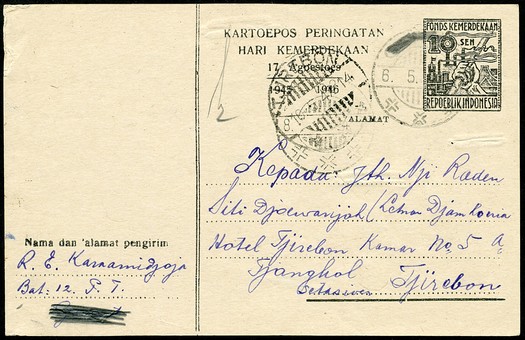 KARTOEPOS PERINGATAN
HARI KEMERDEKAAN
17 Agoestoes
1945 1946
ALAMAT
FONDS KEMERDEKAAN
10 SEN
REPOEBLIK INDONESIA
TJIREBON
6. 5.
1/2
Kepada Jth. Nji Raden
Siti Djoewarijah (Letnan Djamhoeria
Hotel Tjirebon Kamar No. 5 A,
Tjangkol Tjirebon
Nama dan 'alamat pengirim
R. E. Karnamidjoja
Bat: 12. P. T.